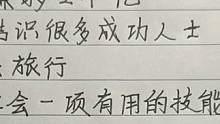 识很多成功人士
旅行
会一项有用的技能